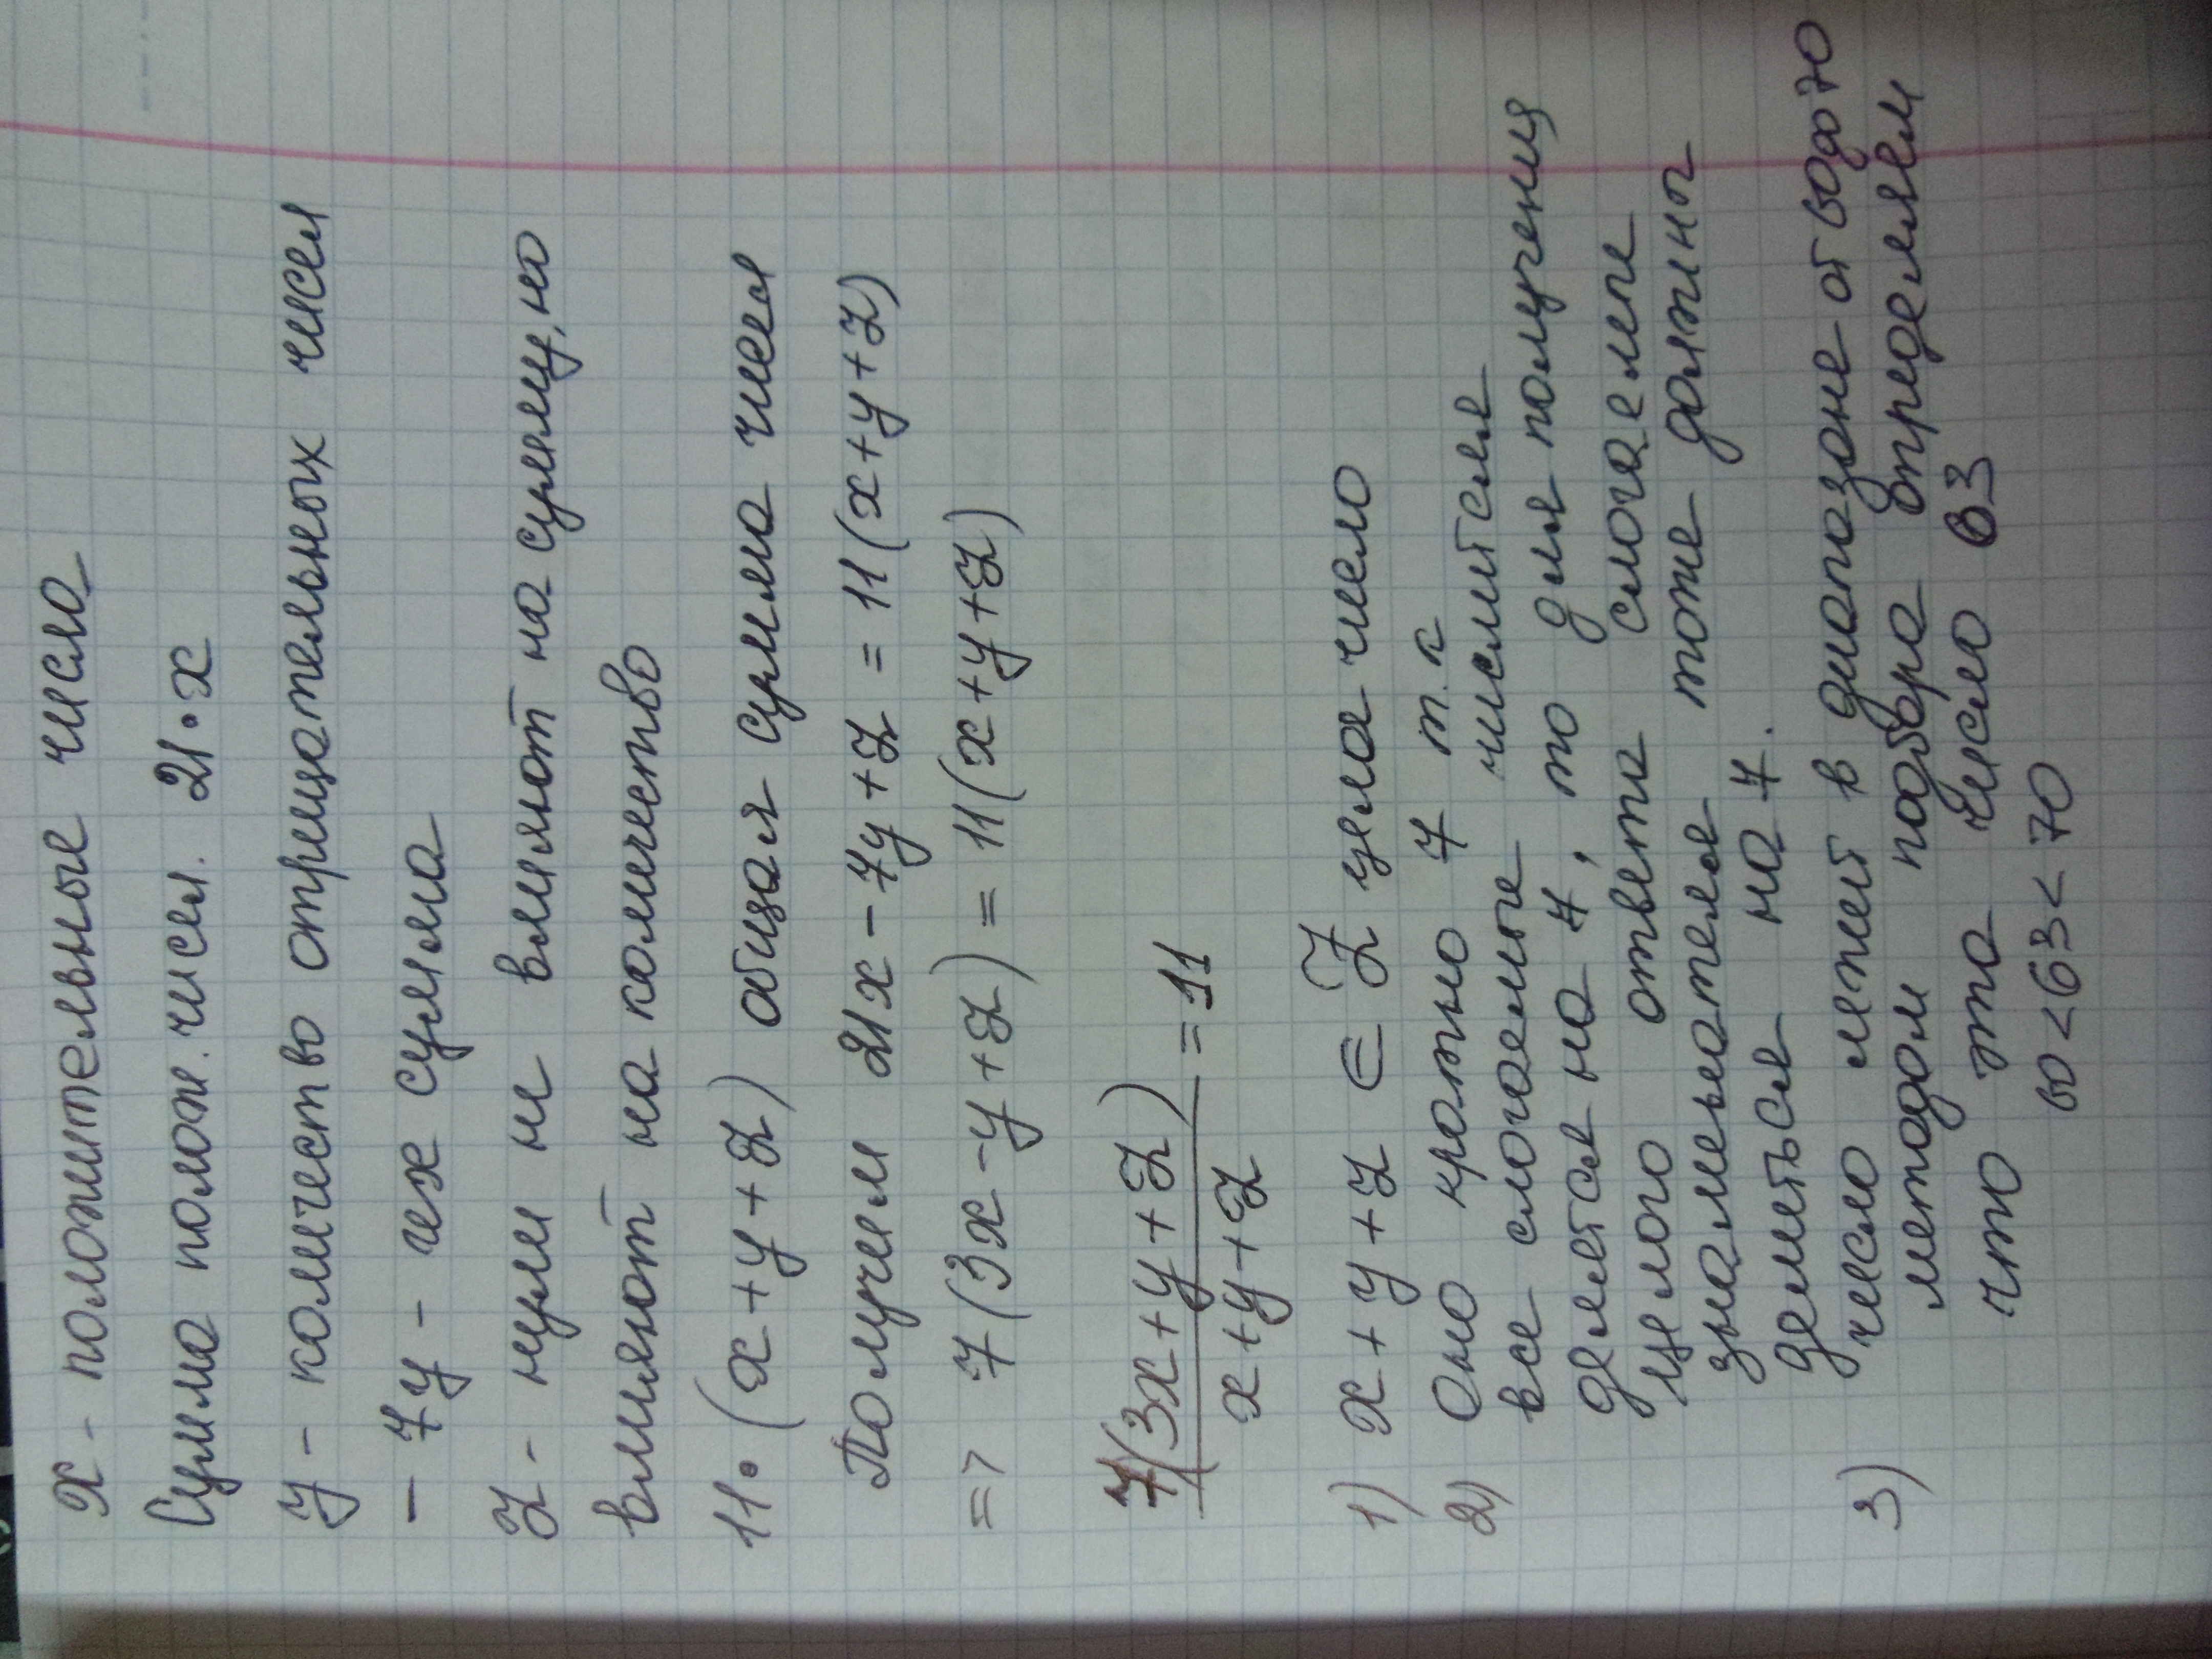 x - положительные число
Сумма полож. чисел. 21•x
y - количество отрицательных чисел
- 7y - их сумма
z - нули не влияют на сумму, но
влияют на количество
11•(x+y+z) общая сумма чисел
Получем 21x - 7y + z = 11(x+y+z)
=> 7(3x - y + z) = 11(x+y+z)
7(3x+y+z)/x+y+z = 11
1) x+y+z ∈ Z целое число
2) Оно кратно 7 т.к
все слогаемые числителя
делятся на 7, то для получения
целого ответа слогаемые
знаменателя тоже должны
делиться на 7.
3) число лежит в диапазоне от 60 до 70
методом подбора определяем
что это число 63
60 < 63 < 70